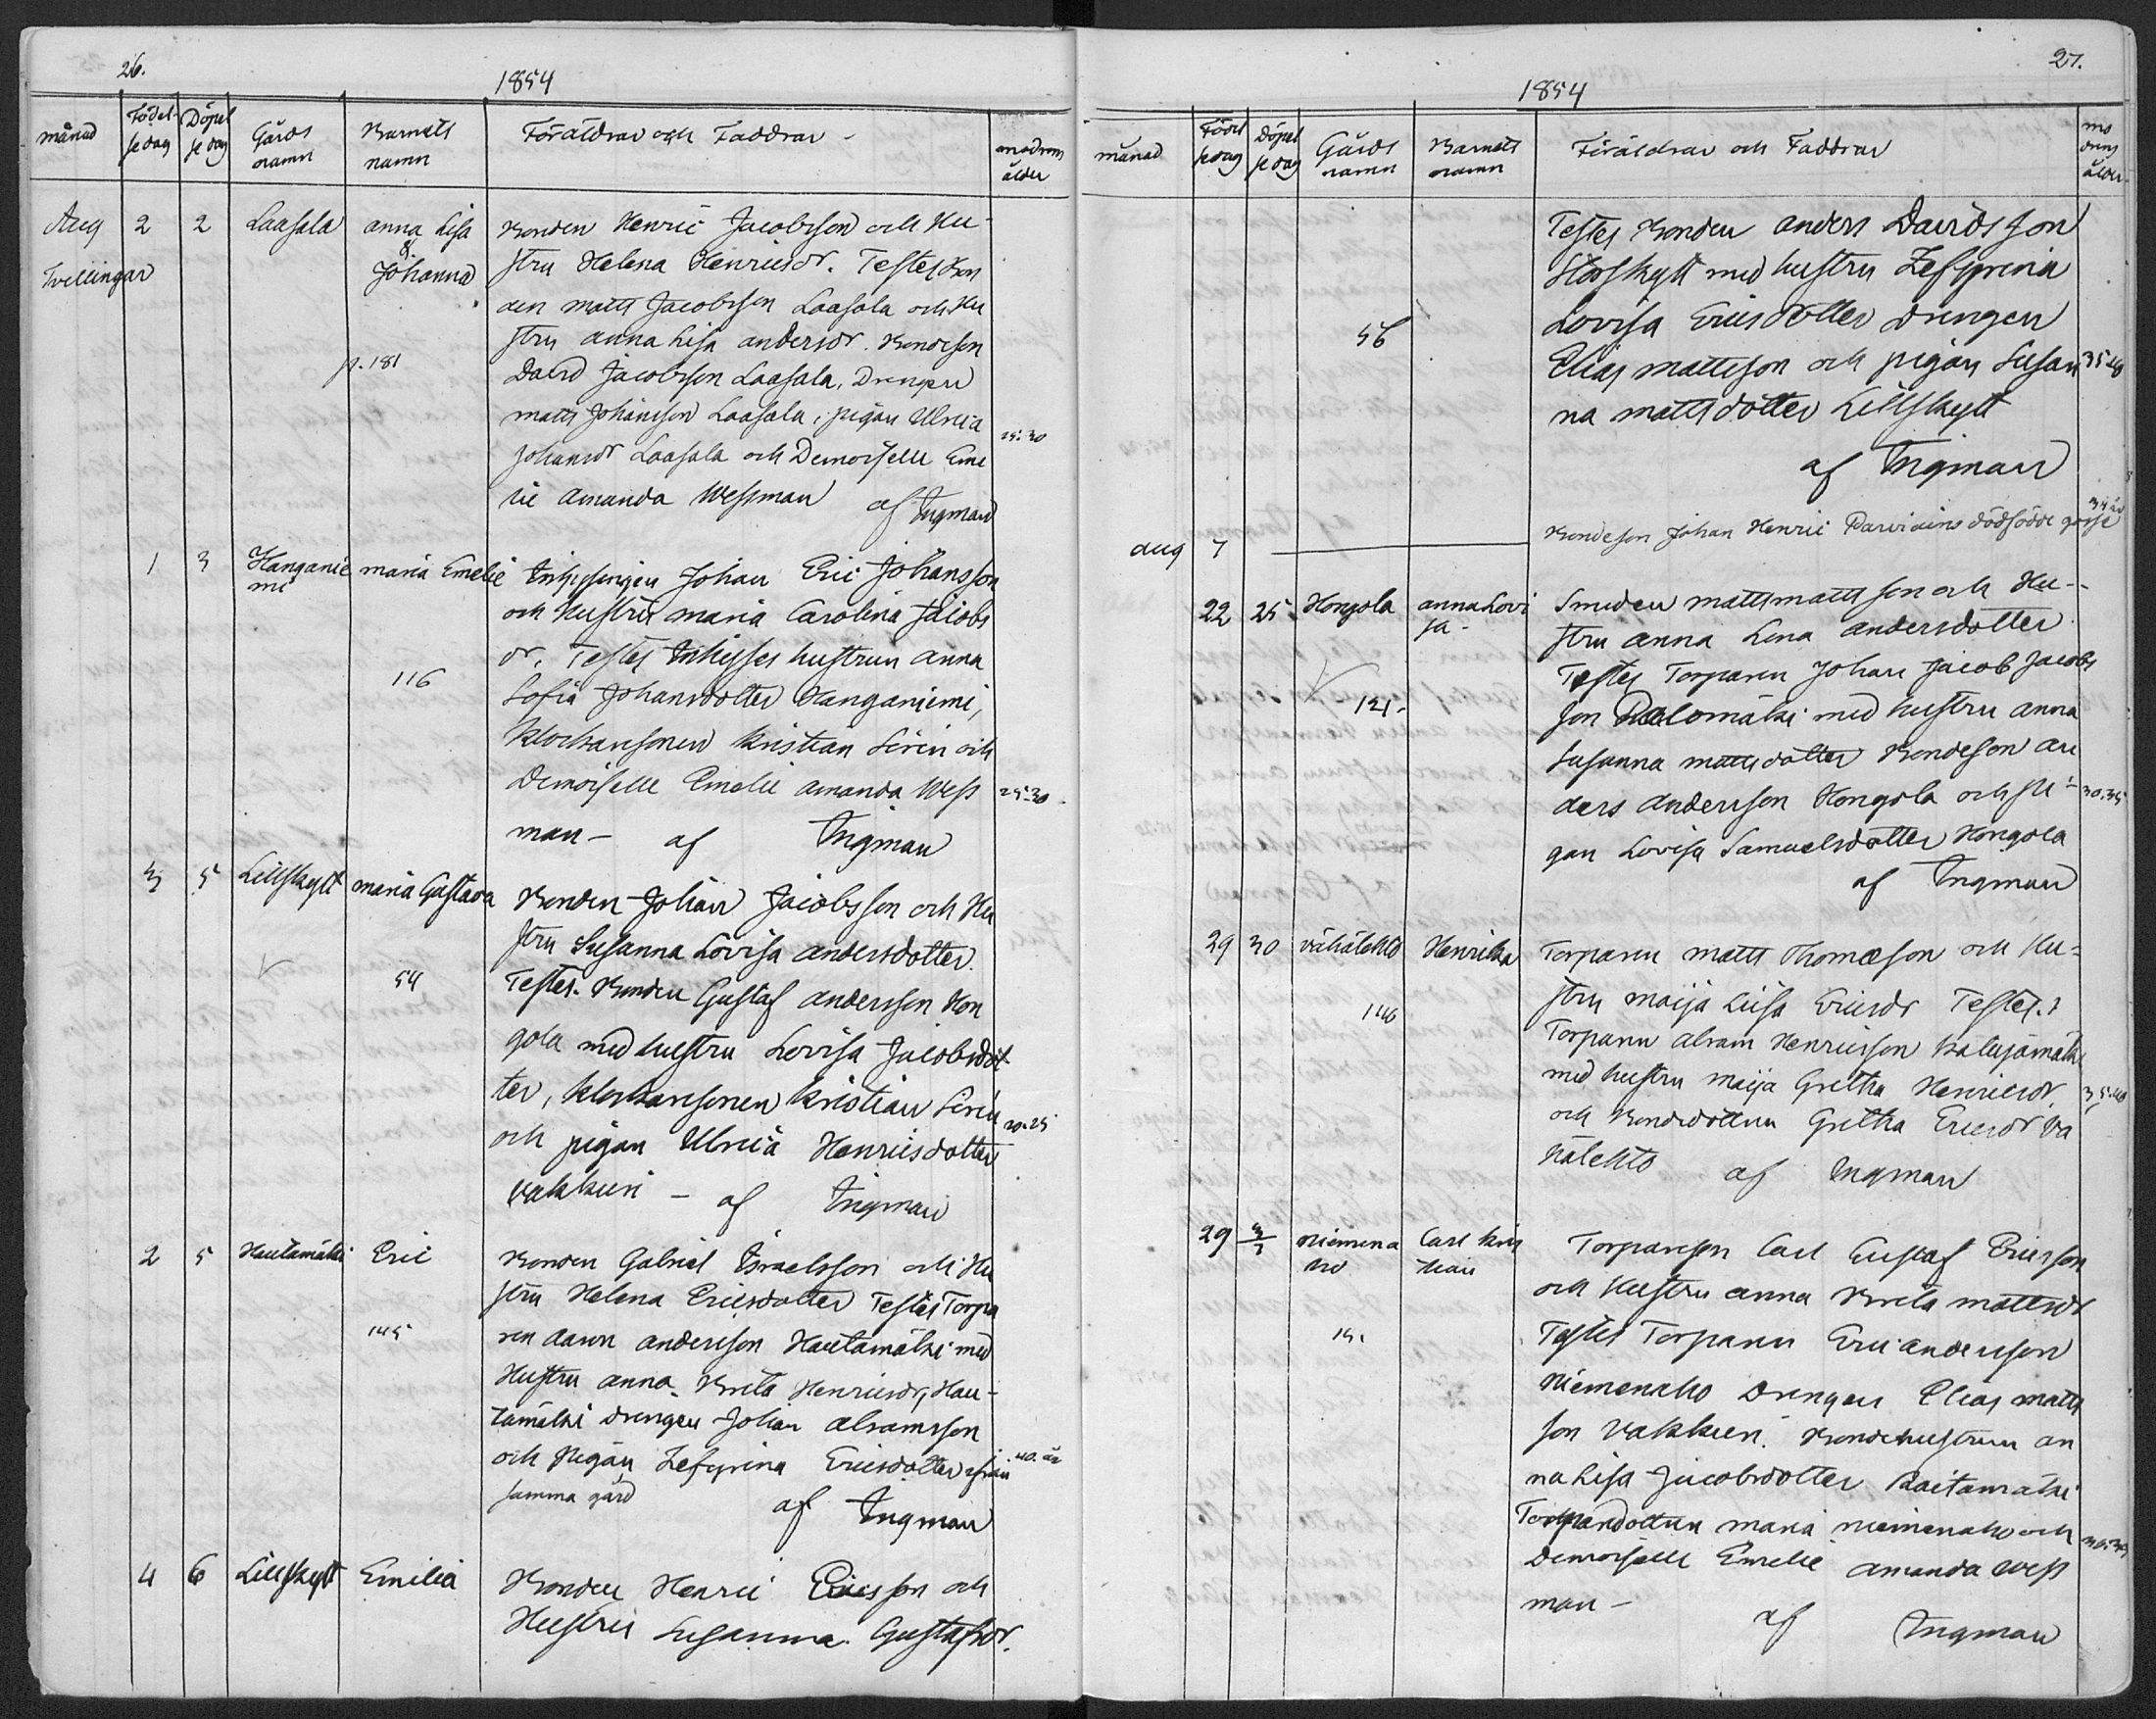 26.
1854
månad Födelsedag Döpelsedag Gårds namn Barnets namn Föräldrar och Faddrar modrens ålder
Aug 2 2 Laasala anna Lisa Bonden Henric Jacobsson och Hu-
Tvellingar & Johanna stru Helena Henricsdr. Testes Bon
den matts Jacobsson Laasala och Hu
stru anna Lisa andersdr. Bondeson
p. 181 David Jacobsson Laasala, Drengen
matts Johansson Laasala, pigan Ulrica 25-30
Johansdr Laasala och Demoiselle Eme
lie amanda Wessman af Ingman
1 3 Hanganie maria Emelie Inhysingen Johan Eric Johansson
mi och Hustru maria Carolina Jacobs
dr. Testes Inhysses hustrun anna
116 Sofia Johansdotter Hanganiemi,
Klockaresonen Kristian Siren och
Demoiselle Emelie amanda Wess 25-30
man - af Ingman
3 5 Lillskytt maria Gustava Bonden Johan Jacobsson och Hu
stru Susanna Lovisa andersdotter.
54 Testes. Bonden Gustaf andersson Hon
gola med hustru Lovisa Jacobsdot
ter, Klockaresonen Kristian Siren 20-25
och pigan Ulrica Henricsdotter
Vakkuri - af Ingman
2 5 Hautamäki Eric Bonden Gabriel Israelsson och Hu
stru Helena Ericsdotter Testes Torpa
145 ren aaron andersson Hautamäki med
Hustru anna Brita Henricsdr, Hau-
tamäki drengen Johan abramsson
och Pigan Zefyrina Ericsdotter ifrån 40. år
samma gård af Ingman
4 6 Lillskytt Emilia Bonden Henric Ericsson och
Hustru Susanna Gustafsdr.
27.
1854
månad Födelsedag Döpelsedag Gårds namn Barnets namn Föräldrar och Faddrar modrens ålder
Testes Bonden anders Davidsson
Storskytt med hustru Zefyrina
56 Lovisa Ericsdotter drengen
Elias mattsson och pigan Susan 35-40
na mattsdotter Lillskytt
af Ingman
aug 7 Bondeson Johan Henric Parviains dödfödde gosse 34 år
22 25 Hongola anna Lovi Smeden matts mattsson och Hu-
sa - stru anna Lena andersdotter
Testes Torparen Johan Jacob Jacobs
121. son Palomäki med hustru anna
Susanna mattsdotter Bondeson an
ders andersson Hongola och pi- 30-35
gan Lovisa Samuelsdotter Hongola
af Ingman
29 30 vähälehto Henrika Torparen matts Thomasson och Hu-
stru maija Liisa Ericsdr Testes:
146 Torparen abram Henricsson Kalujamäki
med hustru maija Gretha Henricsdr 35-40
och Bondedottren Gretha Ericsdr Vä
hälehto af Ingman
29 3/7 niemena Carl Kris Torpareson Carl Gustaf Ericsson
ho tian och Hustru anna Brita mattsdr
Testes Torparen Eric andersson
niemenaho Drengen Elias matts
son Vakkuri. Bondehustrun an
na Lisa Jacobsdotter Raitamäki
Torparedottren maria niemenaho och
Demoiselle Emelie amanda Wess
man -
af Ingman